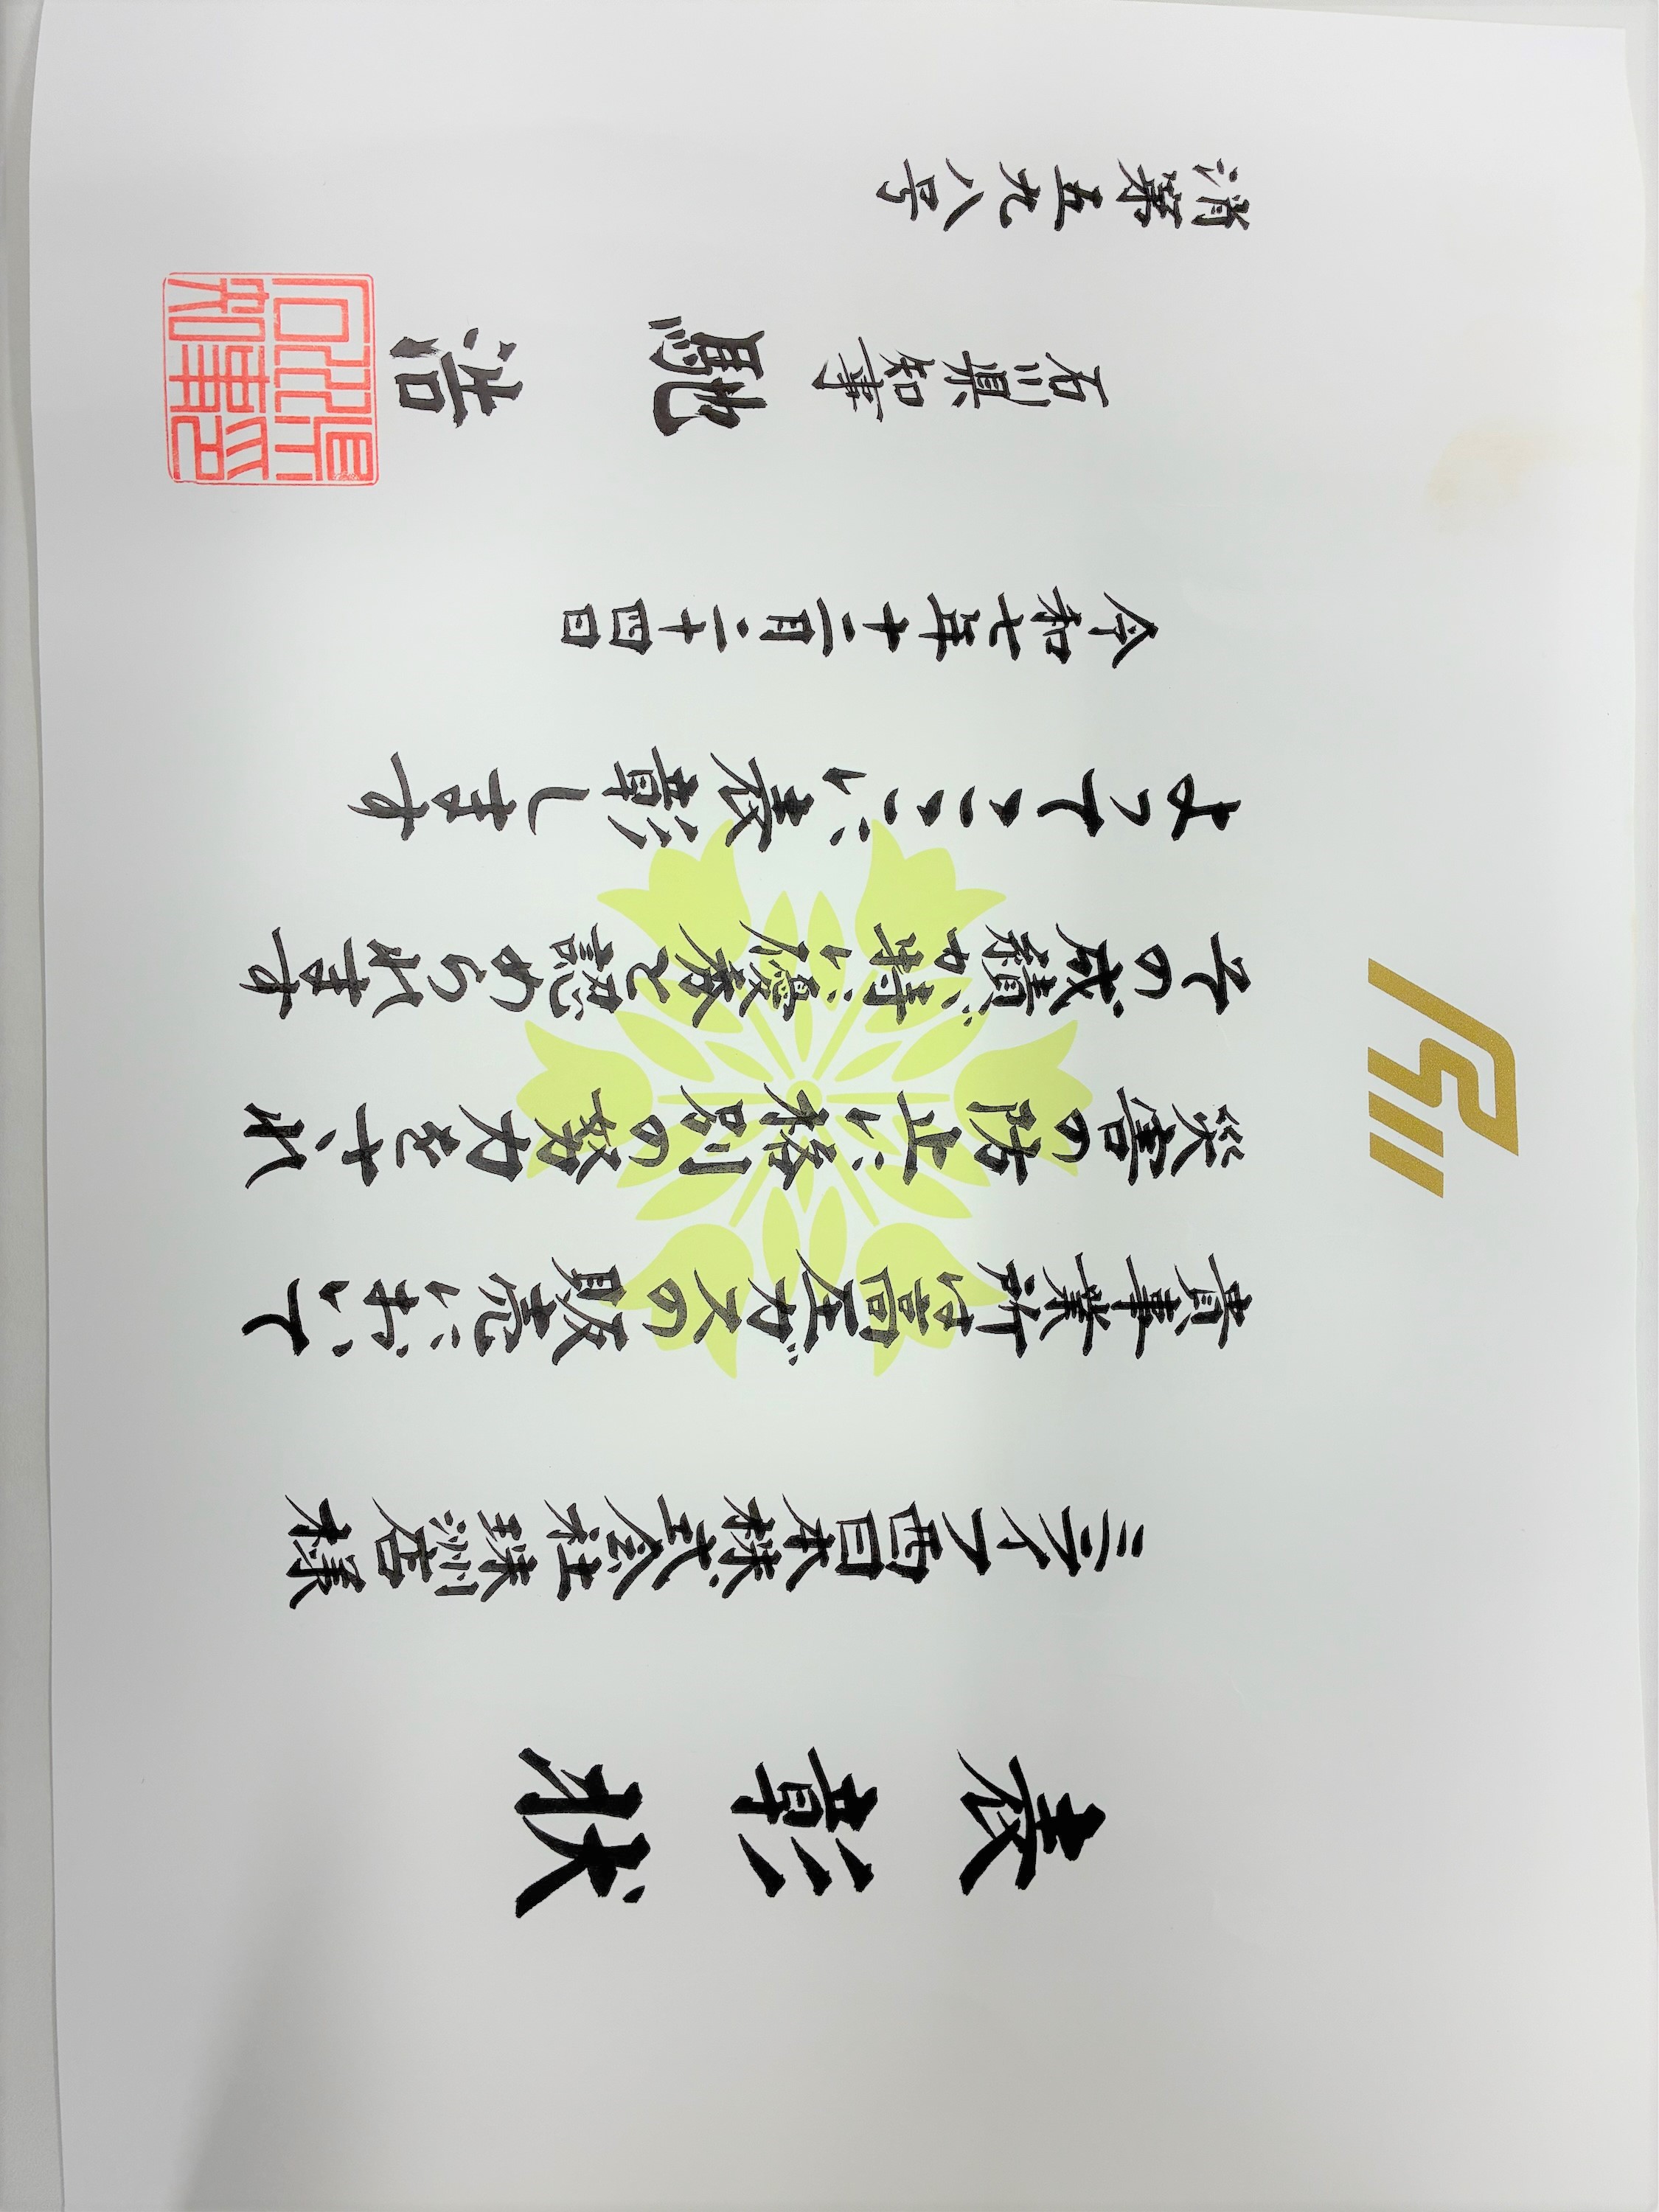 表彰状
ミライフ西日本株式会社珠洲店様
貴事業所は高圧ガスの販売において
災害の防止に格別の努力をされ
その成績が特に優秀と認められます
よってここに表彰します
令和七年十二月二十四日
石川県知事 馳 浩
石川県知事之印
消第五九八号